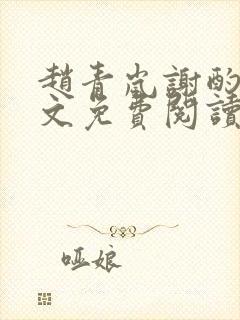 趙青嵐謝酌
文免費閱讀
啞娘